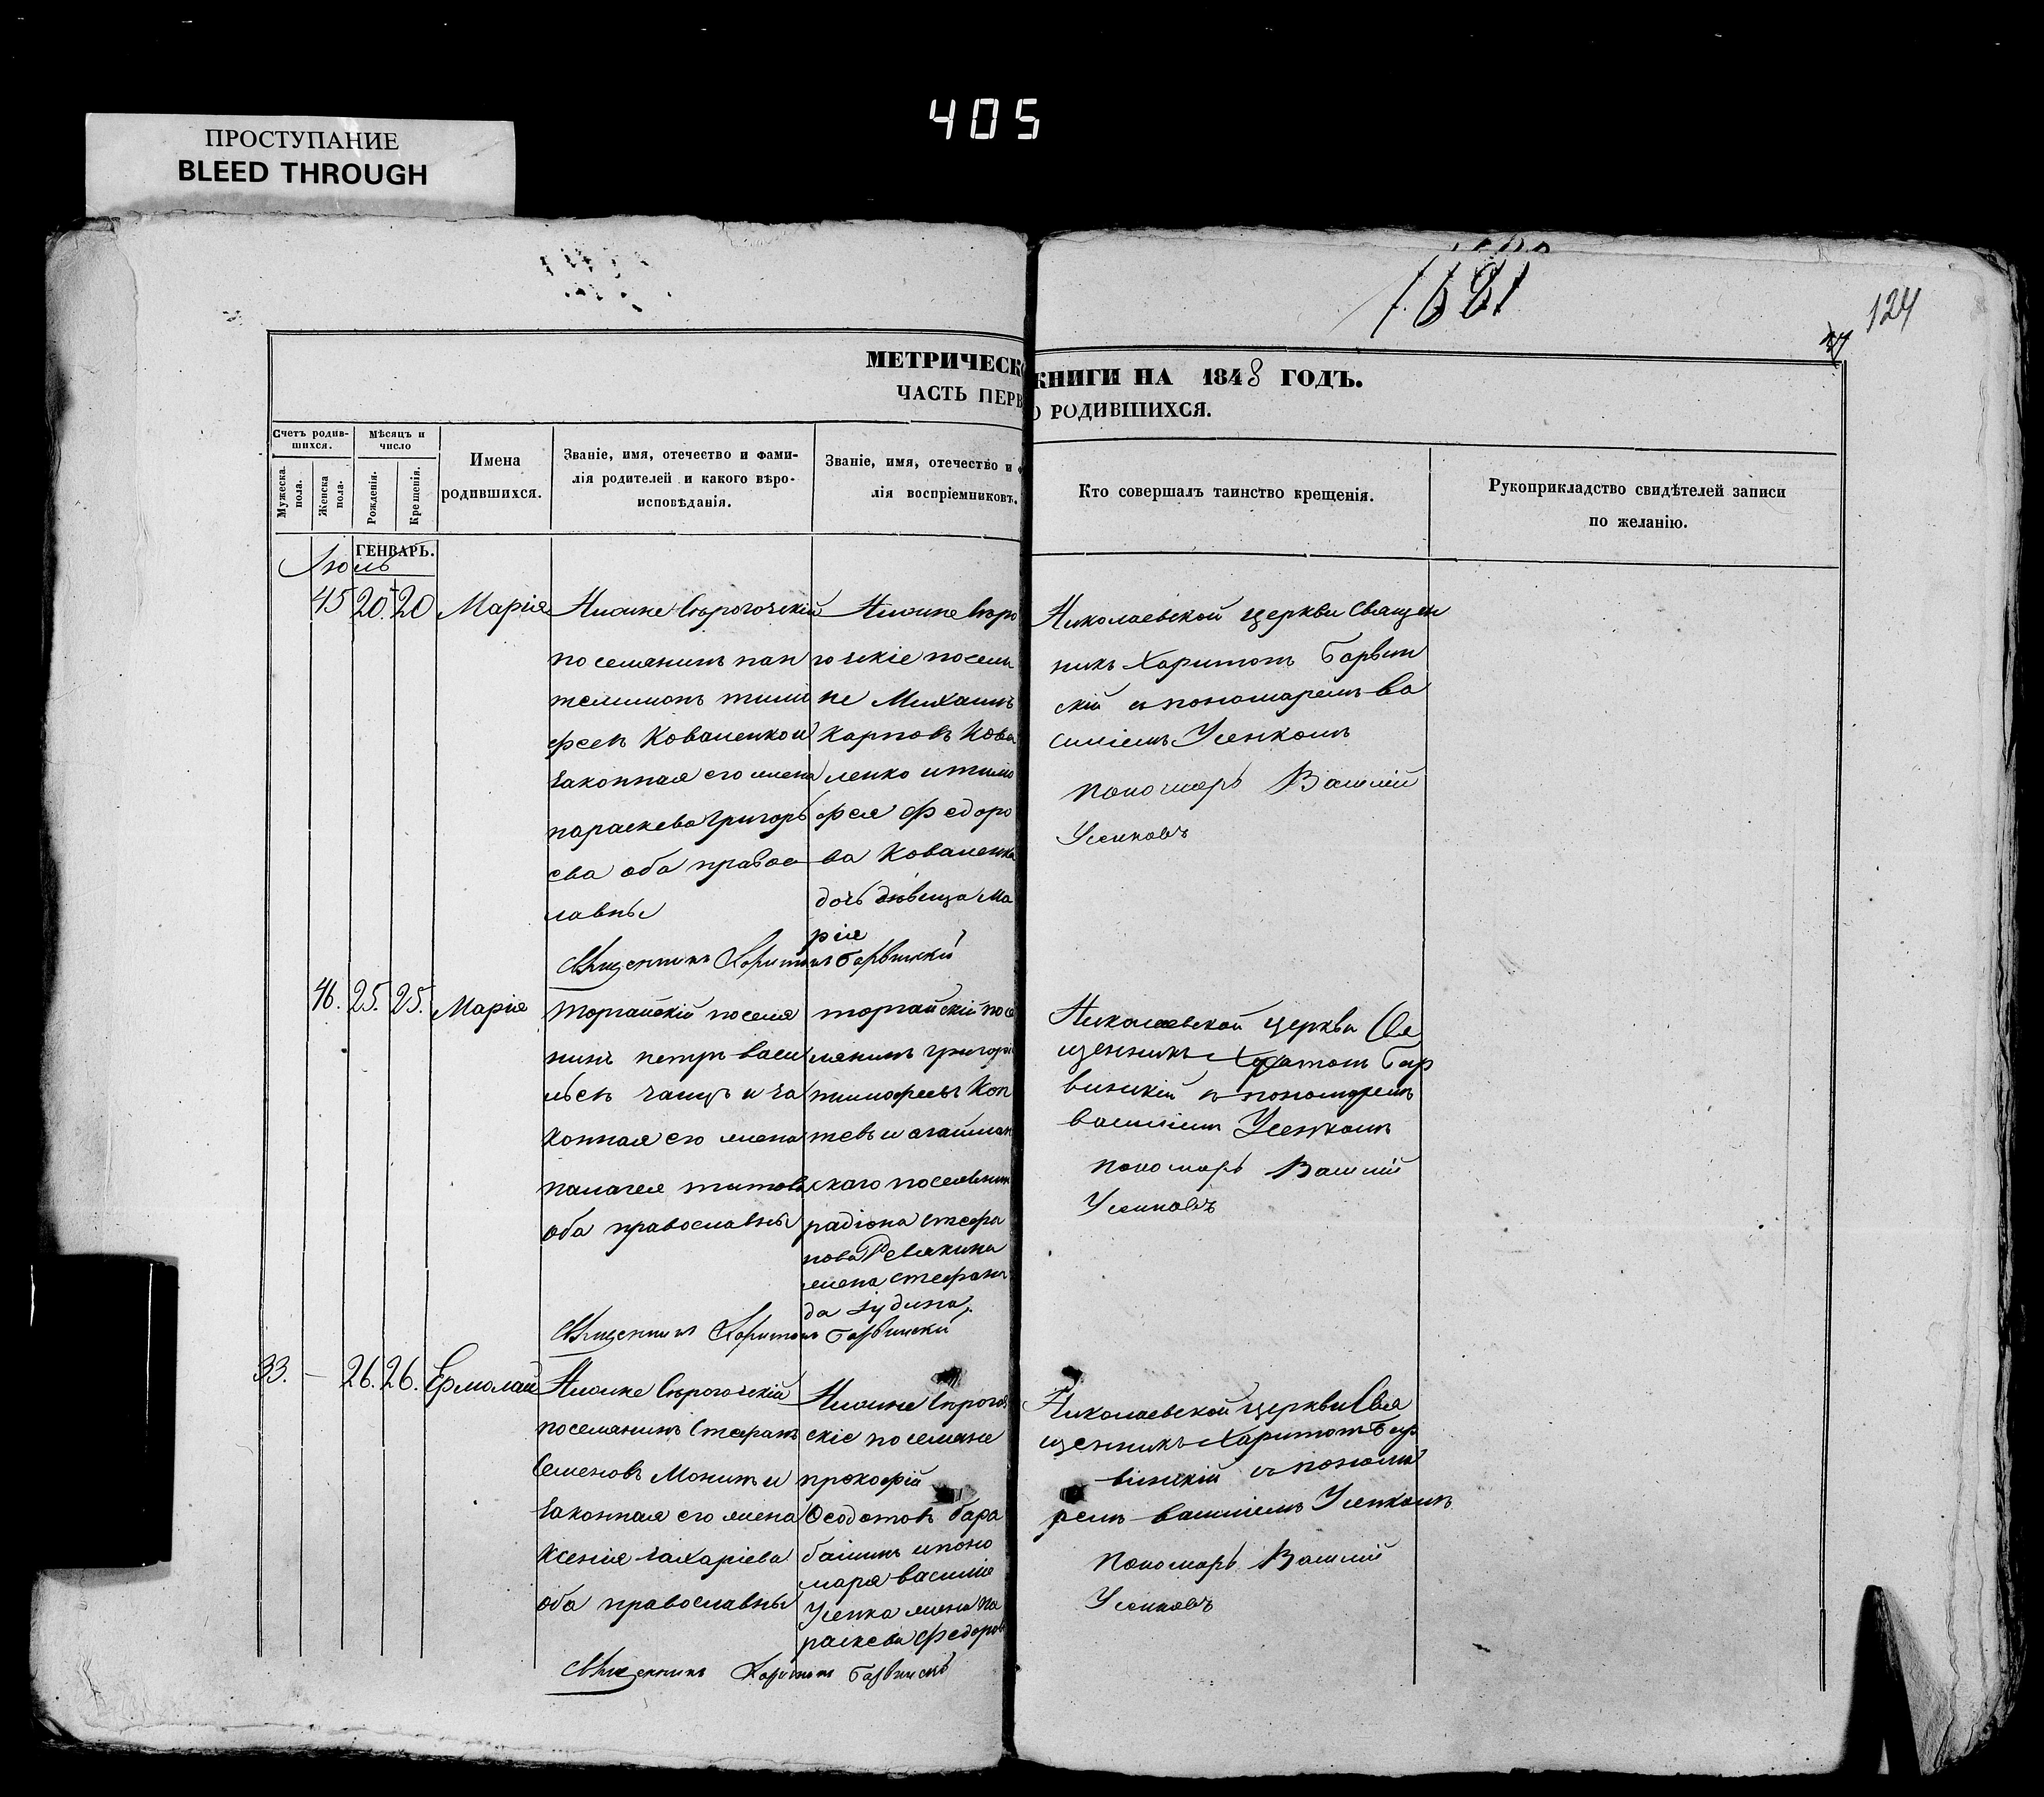 405
ПРОСТУПАНИЕ
BLEED THROUGH
1681
124
МЕТРИЧЕСКО КНИГИ НА 1848 ГОДЪ.
ЧАСТЬ ПЕРВ О РОДИВШИХСЯ.
Счетъ родив-
шихся.
Мужеска
пола.
Женска
пола.
Мѣсяцъ и
число
Рожденія.
Крещенія.
Имена
родившихся.
Званіе, имя, отечество и фами-
лія родителей и какого вѣро-
исповѣданія.
Званіе, имя, отечество и ф
лія воспріемниковъ.
Кто совершалъ таинство крещенія.
Рукоприкладство свидѣтелей записи
по желанію.
ГЕНВАРЬ.
Іюль
45 20. 20 Марія
Нижне Сѣрогозскій
поселянинъ пан
телимонъ тимо
феевъ Коваленко и
законная его жена
параскева григорь
ева оба правос
лавны
Нижне Сѣро
гозскіе поселя
не Михаилъ
Карповъ Кова
ленко и тимо
фея Федоро
ва Коваленка
дочь дѣвица Ма
рія
Николаевской церкви Священ
никъ Харитонъ Барвин
скій съ пономаремъ Ва
силіемъ Усенкомъ
пономарь Василій
Усенковъ
Священникъ Харитонъ Барвинскій
46. 25. 25. Марія
торгайскій поселя
нинъ петръ васи
льевъ и за
конная его жена
палагея титова
оба православны
торгайскій посе
лянинъ григорій
тимофеевъ Коп
тевъ и агайман
скаго поселянин
радіона стефа
нова Ревякина
жена стефани
да Іудина,
Николаевской церкви Свя
щенникъ Харитонъ Бар
винскій съ пономаремъ
василіемъ Усенкомъ
пономарь Василій
Усенковъ
Священникъ Харитонъ Барвинскій
33. — 26. 26. Ермолай
Нижне Сѣрогозскій
поселянинъ Стефанъ
Семеновъ и
законная его жена
Ксенія захаріева
оба православны
Нижне Сѣрогоз
скіе поселяне
прокофій
Ѳеодотовъ бара
башинъ и поно
маря василія
Усенка жена па
раскева Федоров
Николаевской церкви Свя
щенникъ Харитонъ Бар
винскій съ понома
ремъ василіемъ Усенкомъ
пономарь Василій
Усенковъ
Священникъ Харитонъ Барвинскій